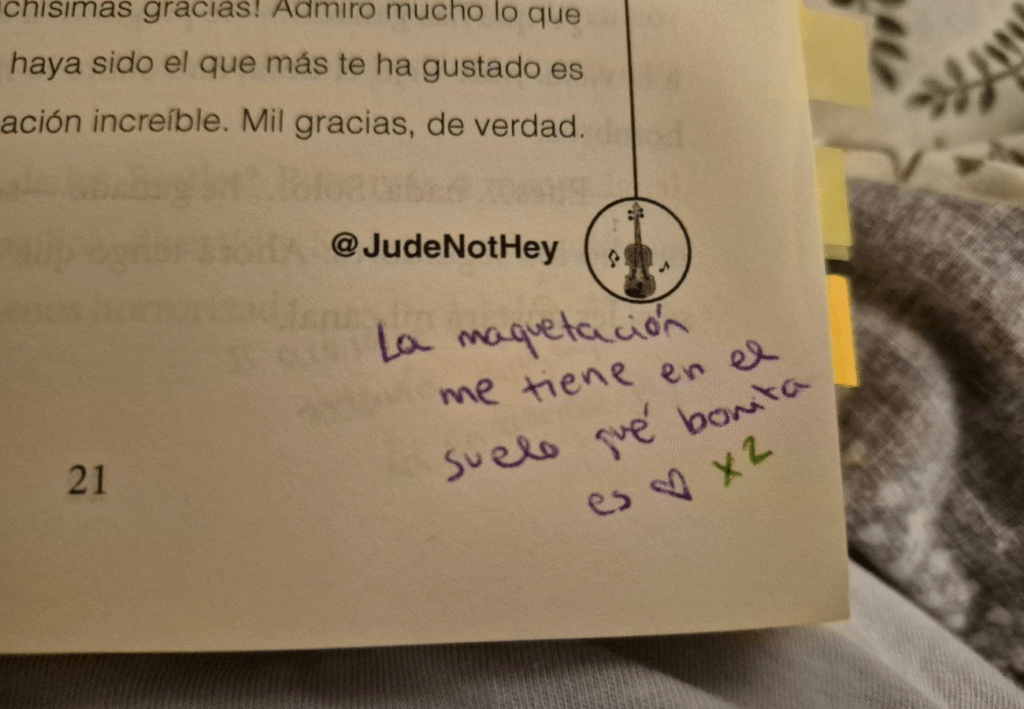 chísimas gracias! Admiro mucho lo que
haya sido el que más te ha gustado es
ación increíble. Mil gracias, de verdad.
@JudeNotHey
La maquetación
me tiene en el
suelo qué bonita
es ♡ x2
21